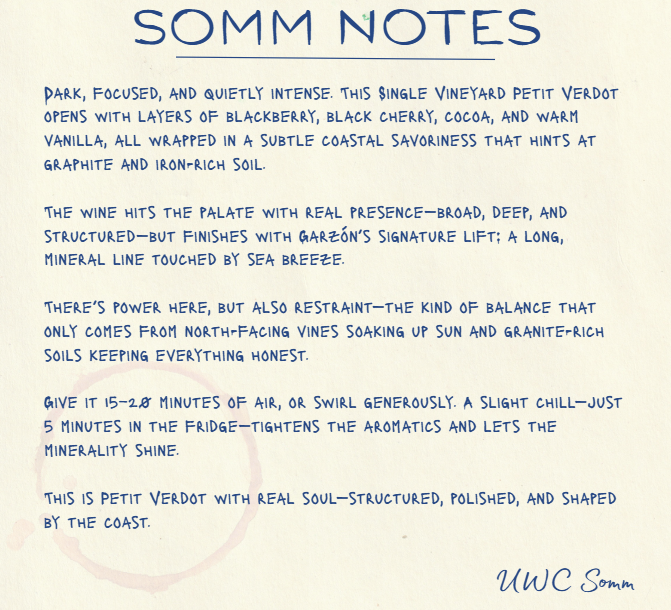 SOMM NOTES
DARK, FOCUSED, AND QUIETLY INTENSE. THIS SINGLE VINEYARD PETIT VERDOT
OPENS WITH LAYERS OF BLACKBERRY, BLACK CHERRY, COCOA, AND WARM
VANILLA, ALL WRAPPED IN A SUBTLE COASTAL SAVORINESS THAT HINTS AT
GRAPHITE AND IRON-RICH SOIL.
THE WINE HITS THE PALATE WITH REAL PRESENCE—BROAD, DEEP, AND
STRUCTURED—BUT FINISHES WITH GARZÓN'S SIGNATURE LIFT: A LONG,
MINERAL LINE TOUCHED BY SEA BREEZE.
THERE'S POWER HERE, BUT ALSO RESTRAINT—THE KIND OF BALANCE THAT
ONLY COMES FROM NORTH-FACING VINES SOAKING UP SUN AND GRANITE-RICH
SOILS KEEPING EVERYTHING HONEST.
GIVE IT 15–20 MINUTES OF AIR, OR SWIRL GENEROUSLY. A SLIGHT CHILL—JUST
5 MINUTES IN THE FRIDGE—TIGHTENS THE AROMATICS AND LETS THE
MINERALITY SHINE.
THIS IS PETIT VERDOT WITH REAL SOUL—STRUCTURED, POLISHED, AND SHAPED
BY THE COAST.
UWC Somm